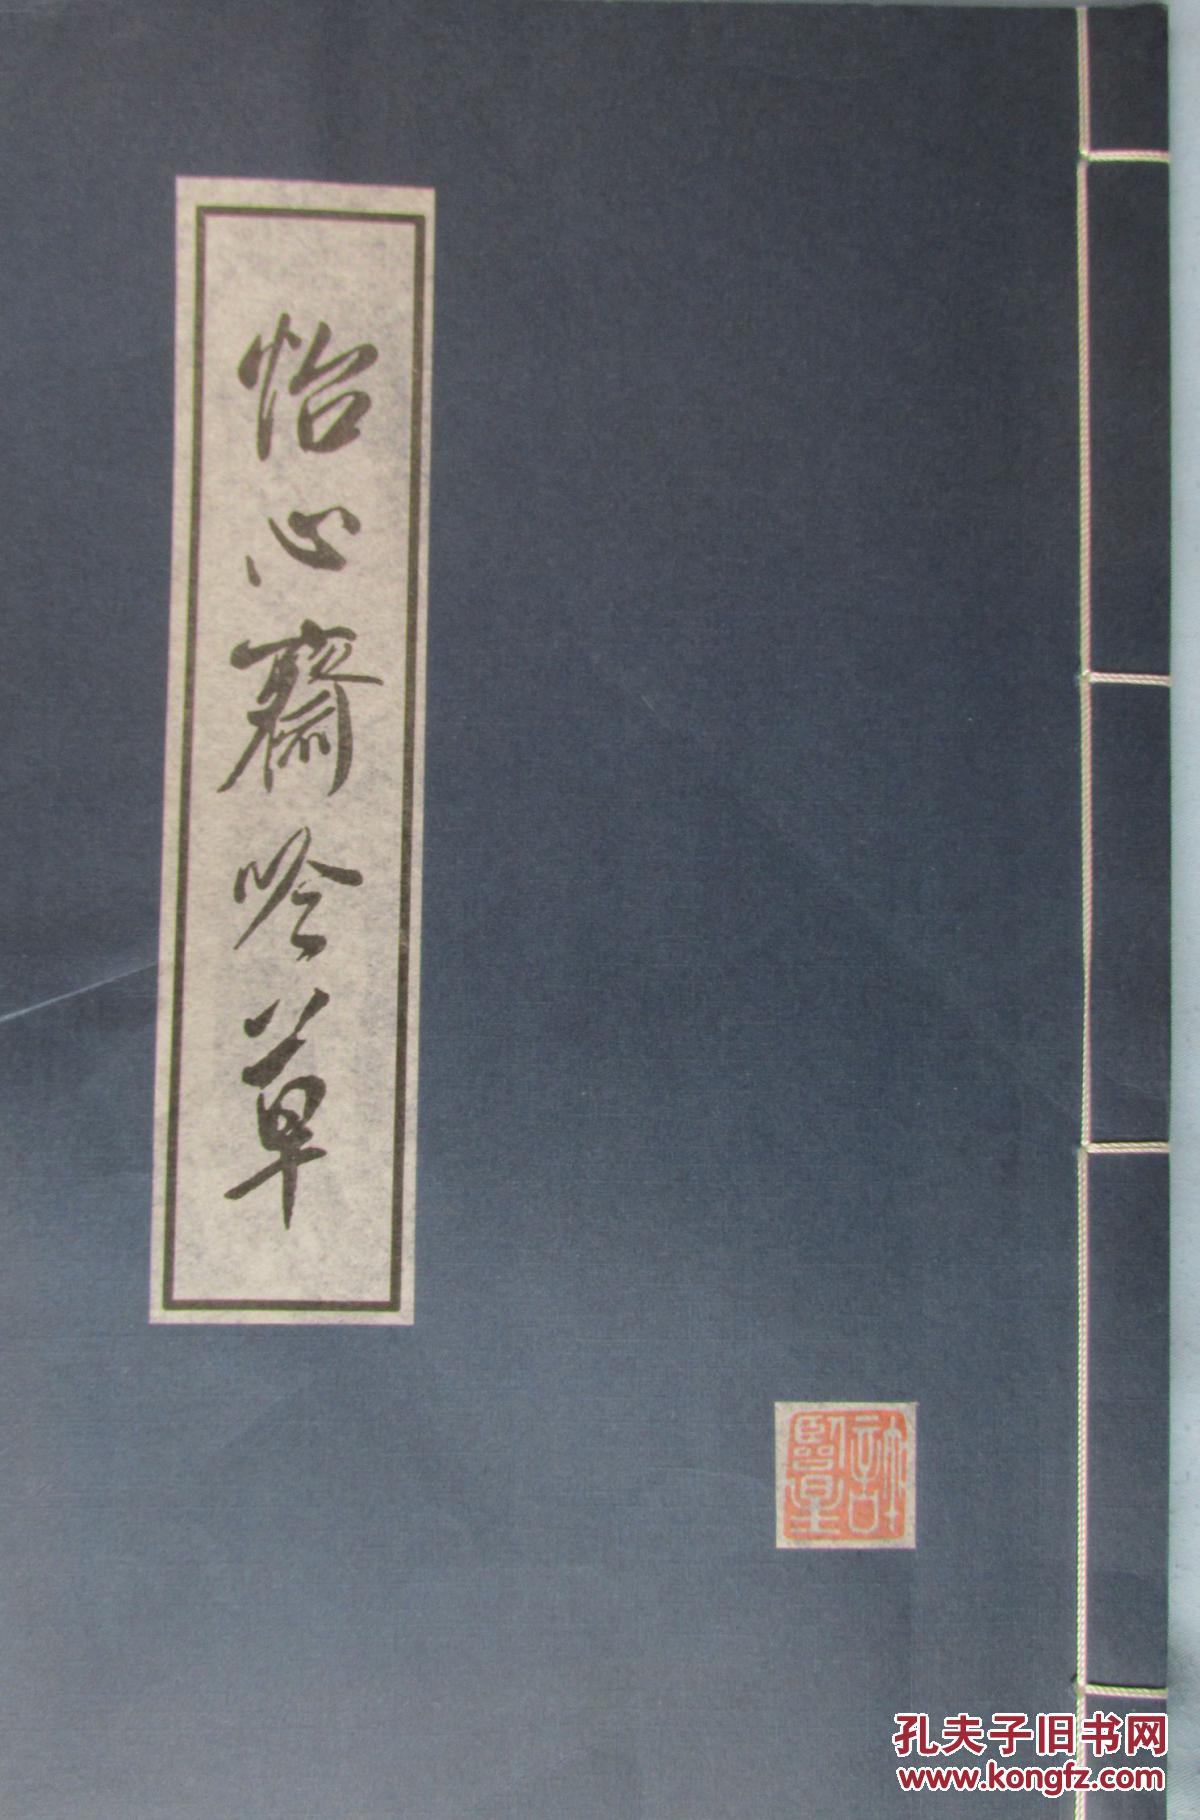 怡心齋吟草
孔夫子旧书网
www.kongfz.com